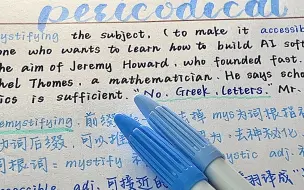 periodical
mystifying the subject. ( to make it accessible
one who wants to learn how to build AI sof
he aim of Jeremy Howard. who founded fast.
hel Thomes, a mathematician. He says sch
ics is sufficient. "No. Greek. letters." Mr.
emystifying. 前缀 掉 mys为词根指
为词后缀, 可以推 为: 去神秘化
词根词: mystify mystic adj.
accessible adj. 可接近的 译成